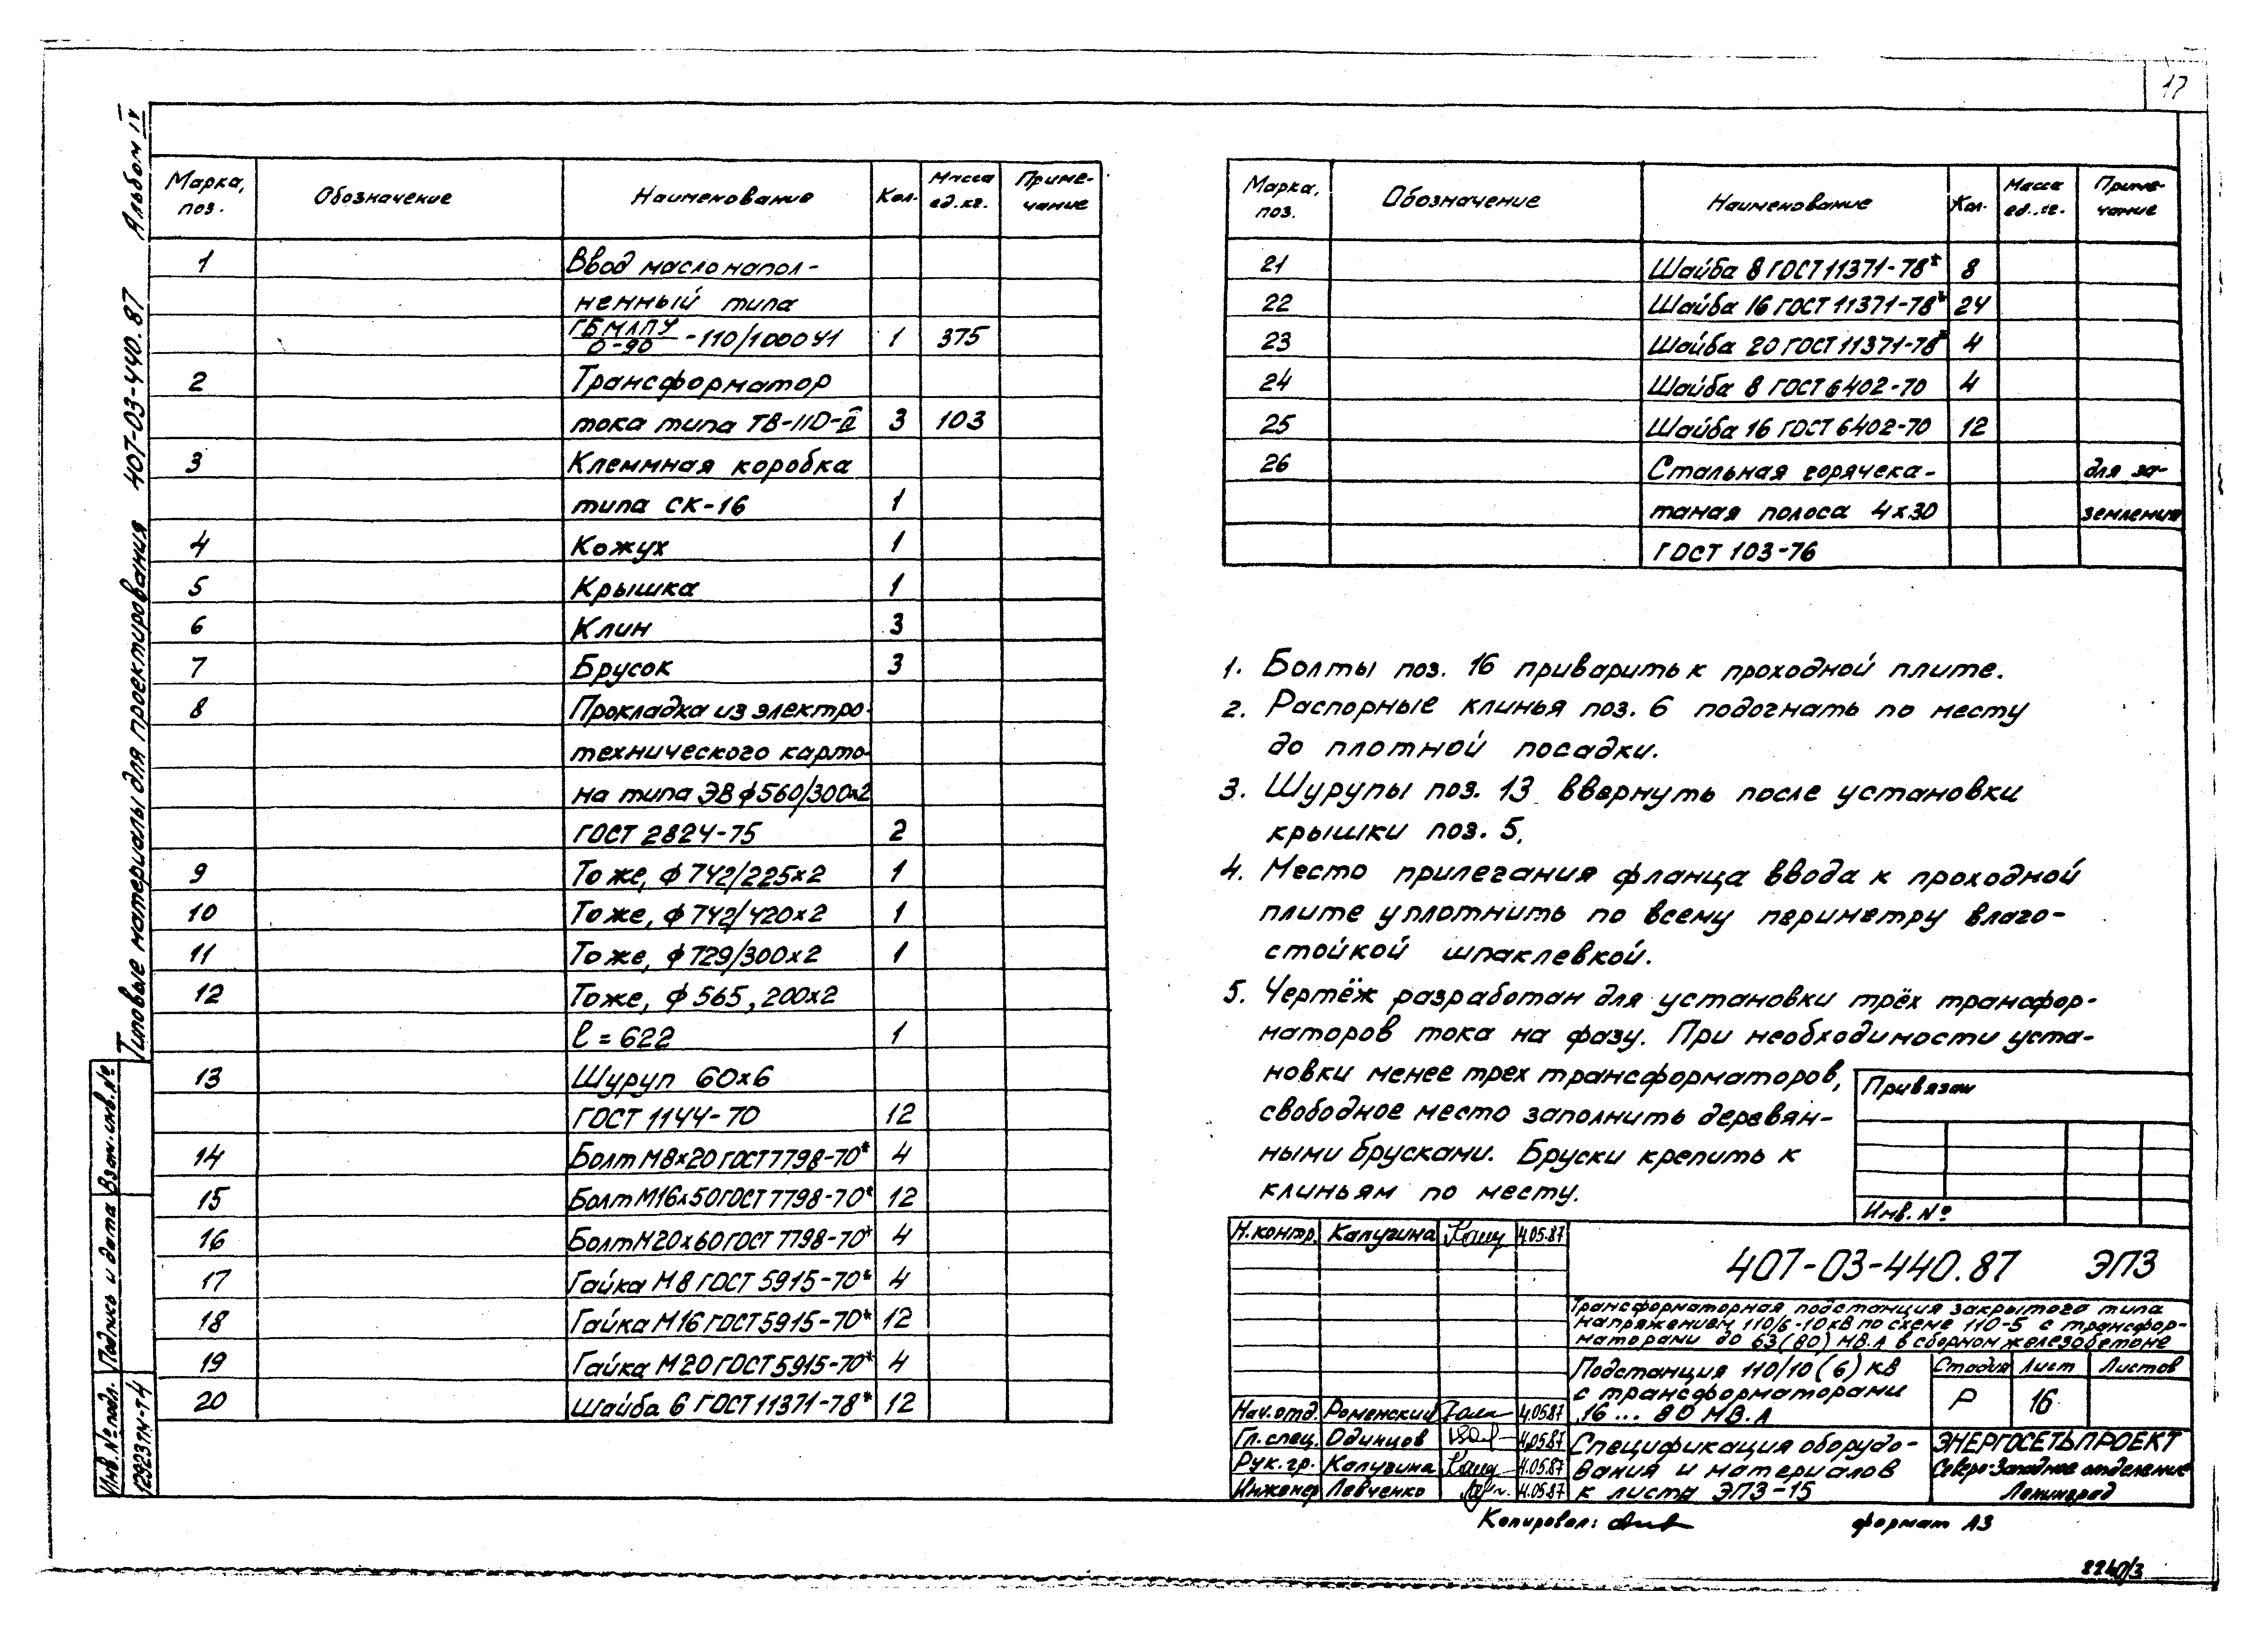 17
Альбом IV
407-03-440.87
Типовые материалы для проектирования
Марка, поз. Обозначение Наименование Кол. Масса ед.кг. Приме-чание
1 Ввод маслонапол-
ненный типа
ГБМЛПУ/0-90 -110/1000У1 1 375
2 Трансформатор
тока типа ТВ-110-II 3 103
3 Клеммная коробка
типа СК-16 1
4 Кожух 1
5 Крышка 1
6 Клин 3
7 Брусок 3
8 Прокладка из электро-
технического карто-
на типа ЭВ ф560/300х2
ГОСТ 2824-75 2
9 То же, ф742/225х2 1
10 То же, ф742/420х2 1
11 То же, ф729/300х2 1
12 То же, ф565, 200х2
l=622 1
13 Шуруп 60х6
ГОСТ 1144-70 12
14 Болт М8х20 ГОСТ 7798-70* 4
15 Болт М16х50 ГОСТ 7798-70* 12
16 Болт М20х60 ГОСТ 7798-70* 4
17 Гайка М8 ГОСТ 5915-70* 4
18 Гайка М16 ГОСТ 5915-70* 12
19 Гайка М20 ГОСТ 5915-70* 4
20 Шайба 6 ГОСТ 11371-78* 12
Марка, поз. Обозначение Наименование Кол. Масса ед.кг. Приме-чание
21 Шайба 8 ГОСТ 11371-78* 8
22 Шайба 16 ГОСТ 11371-78* 24
23 Шайба 20 ГОСТ 11371-78* 4
24 Шайба 8 ГОСТ 6402-70 4
25 Шайба 16 ГОСТ 6402-70 12
26 Стальная горячека- для за-
таная полоса 4х30 земления
ГОСТ 103-76
1. Болты поз. 16 приварить к проходной плите.
2. Распорные клинья поз. 6 подогнать по месту
до плотной посадки.
3. Шурупы поз. 13 ввернуть после установки
крышки поз. 5.
4. Место прилегания фланца ввода к проходной
плите уплотнить по всему периметру влаго-
стойкой шпаклевкой.
5. Чертёж разработан для установки трёх трансфор-
маторов тока на фазу. При необходимости уста-
новки менее трех трансформаторов,
свободное место заполнить деревян-
ными брусками. Бруски крепить к
клиньям по месту.
Привязан
Инв. №
Н.контр. Калугина 4.05.87
407-03-440.87 ЭП3
Трансформаторная подстанция закрытого типа
напряжением 110/6-10кВ по схеме 110-5 с трансфор-
маторами до 63(80) МВ.А в сборном железобетоне
Подстанция 110/10(6) кВ
с трансформаторами
16...80 МВ.А
Стадия Лист Листов
Р 16
Нач.отд. Роменский 4.05.87
Гл.спец. Одинцов 4.05.87
Рук.гр. Калугина 4.05.87
Инженер Левченко 4.05.87
Спецификация оборудо-
вания и материалов
к листу ЭП3-15
ЭНЕРГОСЕТЬПРОЕКТ
Северо-Западное отделение
Ленинград
Копировал:
формат А3
Взам.инв.№
Подпись и дата
Инв.№ подл.
12923тм-т4
2240/3